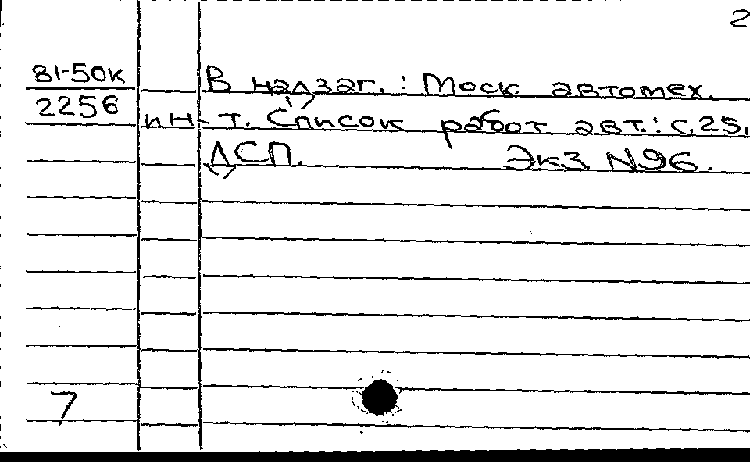 2
81-50к В надзаг.: Моск автомех.
2256 ин-т. Список работ авт.: с.25.
ДСП. Экз N96.
7